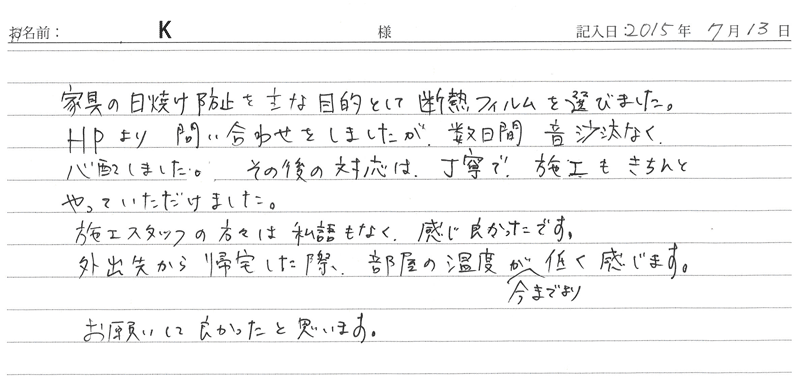 お名前: K 様 記入日:2015年 7月13日
家具の日焼け防止を主な目的として断熱フィルムを選びました。
HPより 問い合わせをしましたが、数日間 音沙汰なく、
心配しました。 その後の対応は、丁寧で、施工もきちんと
やっていただけました。
施工スタッフの方々は私語もなく、感じ良かったです。
外出先から帰宅した際、部屋の温度が低く感じます。
今までより
お願いして良かったと思います。